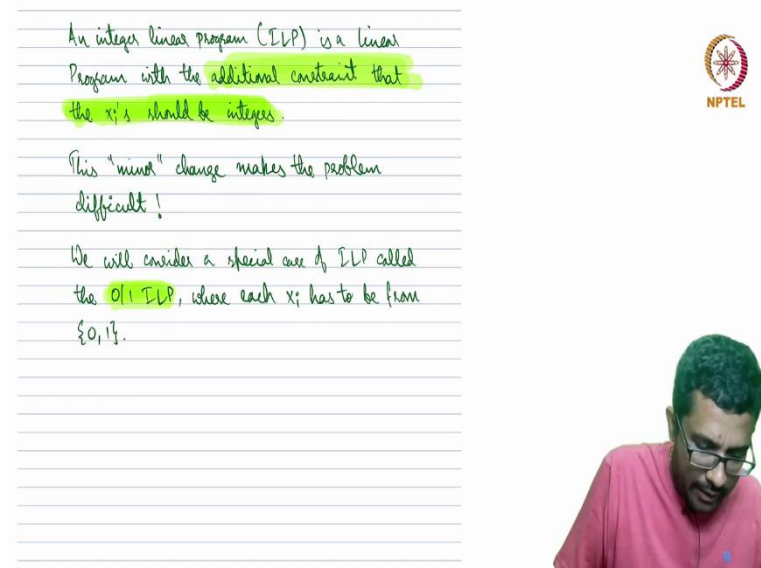 An integer linear program (ILP) is a linear
Program with the additional constraint that
the xᵢ's should be integers.
This "minor" change makes the problem
difficult!
We will consider a special case of ILP called
the 0/1 ILP, where each xᵢ has to be from
{0,1}.
NPTEL